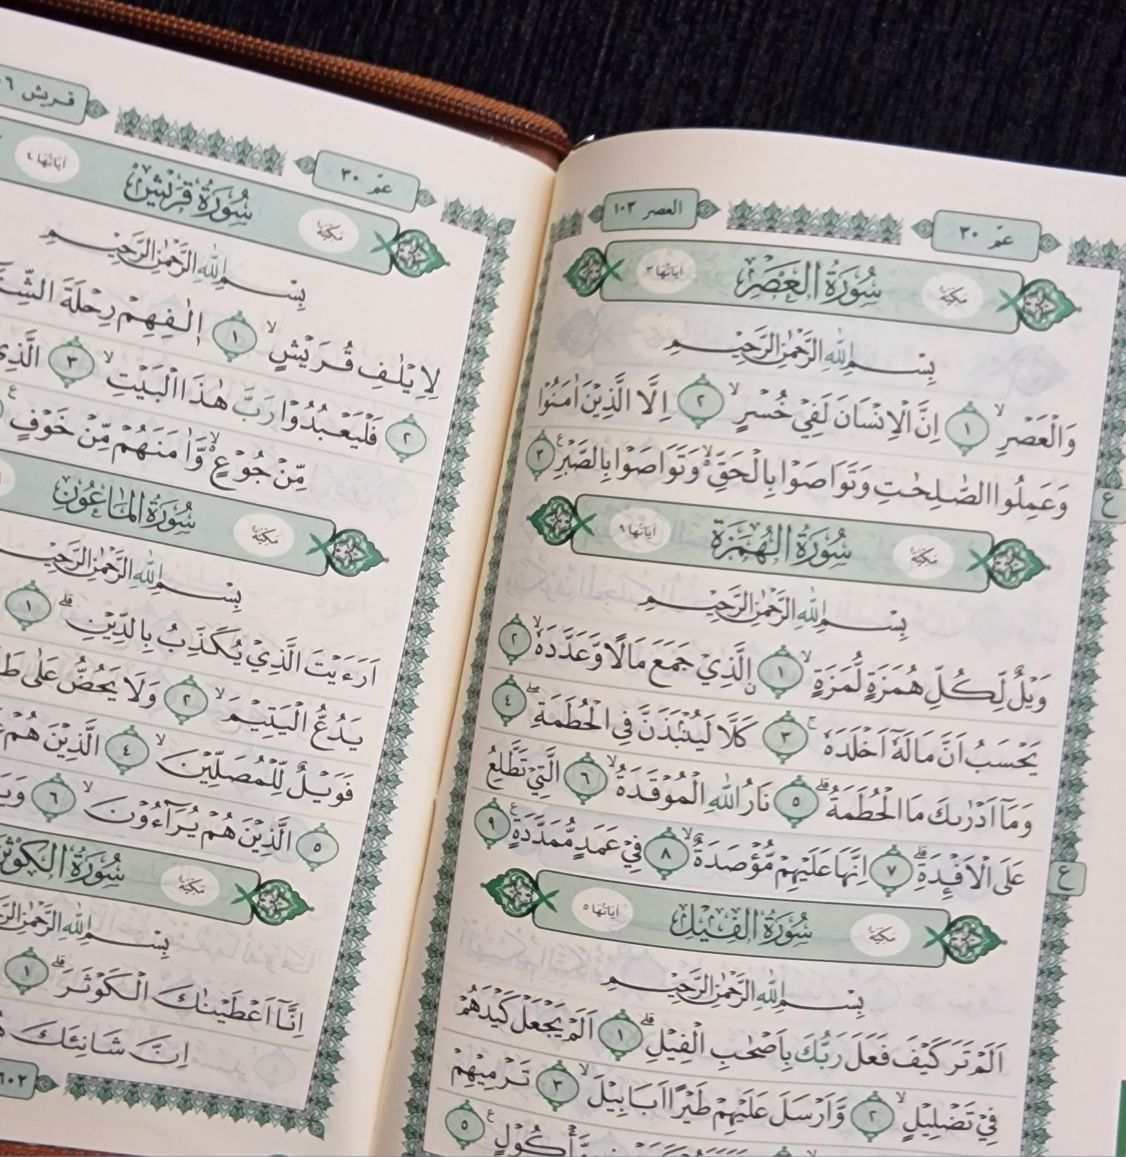 العصر ١٠٣
عمّ ٣٠
سُوْرَةُ الْعَصْرِ
مكية
اٰيَاتُهَا ٣
بِسْــــمِ اللهِ الرَّحْمٰنِ الرَّحِيْـــمِ
وَالْعَصْرِۙ ١ اِنَّ الْاِنْسَانَ لَفِيْ خُسْرٍۙ ٢ اِلَّا الَّذِيْنَ اٰمَنُوْا
وَعَمِلُوا الصّٰلِحٰتِ وَتَوَاصَوْا بِالْحَقِّ ەۙ وَتَوَاصَوْا بِالصَّبْرِ ࣖ ٣
ع
سُوْرَةُ الْهُمَزَةِ
مكية
اٰيَاتُهَا ٩
بِسْــــمِ اللهِ الرَّحْمٰنِ الرَّحِيْـــمِ
وَيْلٌ لِّكُلِّ هُمَزَةٍ لُّمَزَةٍۙ ١ ۨالَّذِيْ جَمَعَ مَالًا وَّعَدَّدَهٗۙ ٢
يَحْسَبُ اَنَّ مَالَهٗٓ اَخْلَدَهٗۚ ٣ كَلَّا لَيُنْۢبَذَنَّ فِى الْحُطَمَةِۖ ٤
وَمَآ اَدْرٰىكَ مَا الْحُطَمَةُۗ ٥ نَارُ اللهِ الْمُوْقَدَةُۙ ٦ الَّتِيْ تَطَّلِعُ
عَلَى الْاَفْـِٕدَةِۗ ٧ اِنَّهَا عَلَيْهِمْ مُّؤْصَدَةٌۙ ٨ فِيْ عَمَدٍ مُّمَدَّدَةٍ ࣖ ٩
ع
سُوْرَةُ الْفِيْلِ
مكية
اٰيَاتُهَا ٥
بِسْــــمِ اللهِ الرَّحْمٰنِ الرَّحِيْـــمِ
اَلَمْ تَرَ كَيْفَ فَعَلَ رَبُّكَ بِاَصْحٰبِ الْفِيْلِۗ ١ اَلَمْ يَجْعَلْ كَيْدَهُمْ
فِيْ تَضْلِيْلٍۙ ٢ وَّاَرْسَلَ عَلَيْهِمْ طَيْرًا اَبَابِيْلَۙ ٣ تَرْمِيْهِمْ
مَّأْكُوْلٍ ࣖ ٥
قريش
عمّ ٣٠
سُوْرَةُ قُرَيْشٍ
مكية
اٰيَاتُهَا ٤
بِسْــــمِ اللهِ الرَّحْمٰنِ الرَّحِيْـــمِ
لِاِيْلٰفِ قُرَيْشٍۙ ١ اٖلٰفِهِمْ رِحْلَةَ
٢ فَلْيَعْبُدُوْا رَبَّ هٰذَا الْبَيْتِۙ ٣ الَّذِيْٓ
مِّنْ جُوْعٍ ەۙ وَّاٰمَنَهُمْ مِّنْ خَوْفٍ ࣖ
سُوْرَةُ الْمَاعُوْنِ
مكية
بِسْــــمِ اللهِ الرَّحْمٰنِ الرَّحِيْـــمِ
اَرَءَيْتَ الَّذِيْ يُكَذِّبُ بِالدِّيْنِۗ ١
يَدُعُّ الْيَتِيْمَۙ ٢ وَلَا يَحُضُّ عَلٰى
فَوَيْلٌ لِّلْمُصَلِّيْنَۙ ٤ الَّذِيْنَ هُمْ
٥ الَّذِيْنَ هُمْ يُرَاۤءُوْنَۙ ٦
سُوْرَةُ الْكَوْثَرِ
مكية
بِسْــــمِ اللهِ الرَّحْمٰنِ
اِنَّآ اَعْطَيْنٰكَ الْكَوْثَرَۗ ١
اِنَّ شَانِئَكَ
٦٠٢